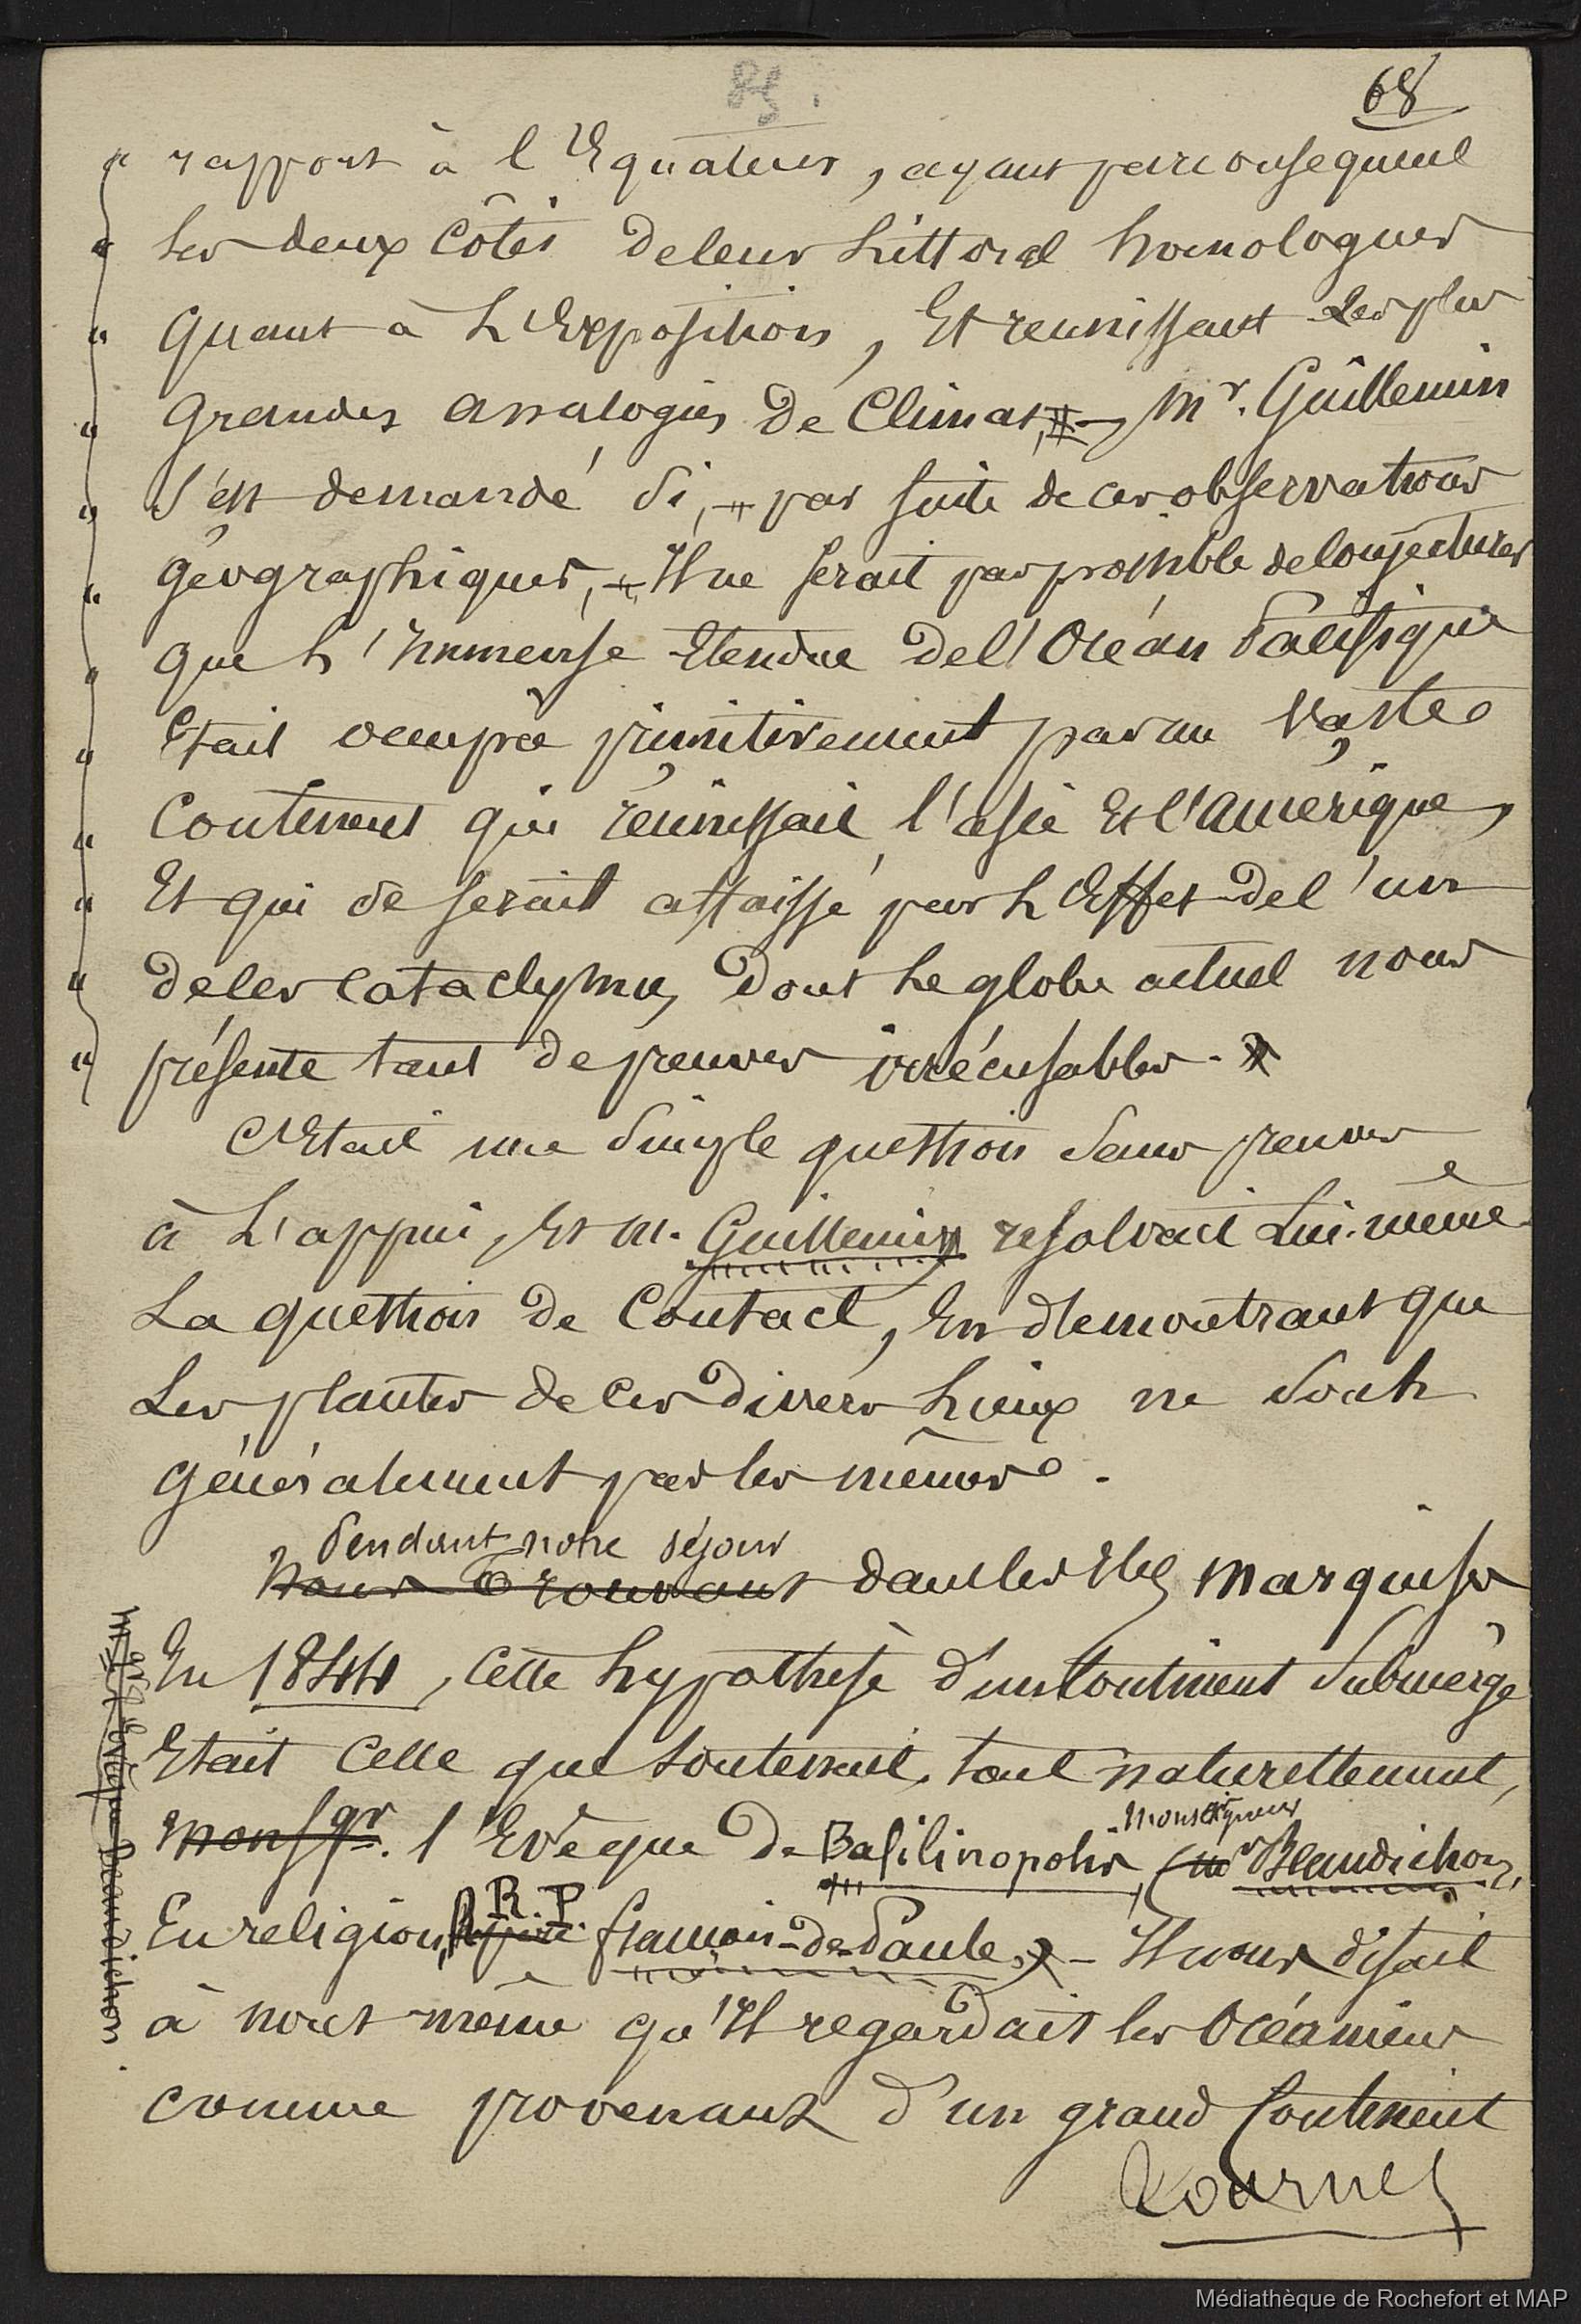 85.
68
" rapport à l'Equateur, ayant par conséquent
" les deux côtés de leur Littoral homologues
" quant à L'Exposition, Et reunissant les plus
" grandes analogies de Climat, — Mr. Guillemin
" s'est demandé si, — par suite de ces observations
" géographiques, — Il ne serait pas possible de conjecturer
" que L'immense Etendue de l'Océan Pacifique
" Etait occupée primitivement par un vaste
" Continent qui réunissait l'asie Et l'amérique,
" Et qui se serait affaissé par L'Effet de l'un
" de ces cataclysmes, dont Le globe actuel nous
" présente tant de preuves irrécusables.
C'Etait une simple question sans preuves
à L'appui, Et M. Guillemin resolvait Lui-même
La question de Contact, En démontrant que
Les plantes de ces divers Lieux ne sont
généralement pas les mêmes.
Pendant notre séjour
Nous trouvant dans les Iles Marquises
En 1844, cette hypothèse d'un Continent submergé
Etait celle que soutenait, tout naturellement,
Monseigneur
Monsgr. l'Evêque de Basilinopolis, (Mr Beaudichon,
R. P.
En religion, le père françois-de-Paule) — Il nous disait
à nous-même qu'Il regardait les Océaniens
comme provenant d'un grand Continent
Tournez
Mgr L'Evêque Beaudichon.
Médiathèque de Rochefort et MAP